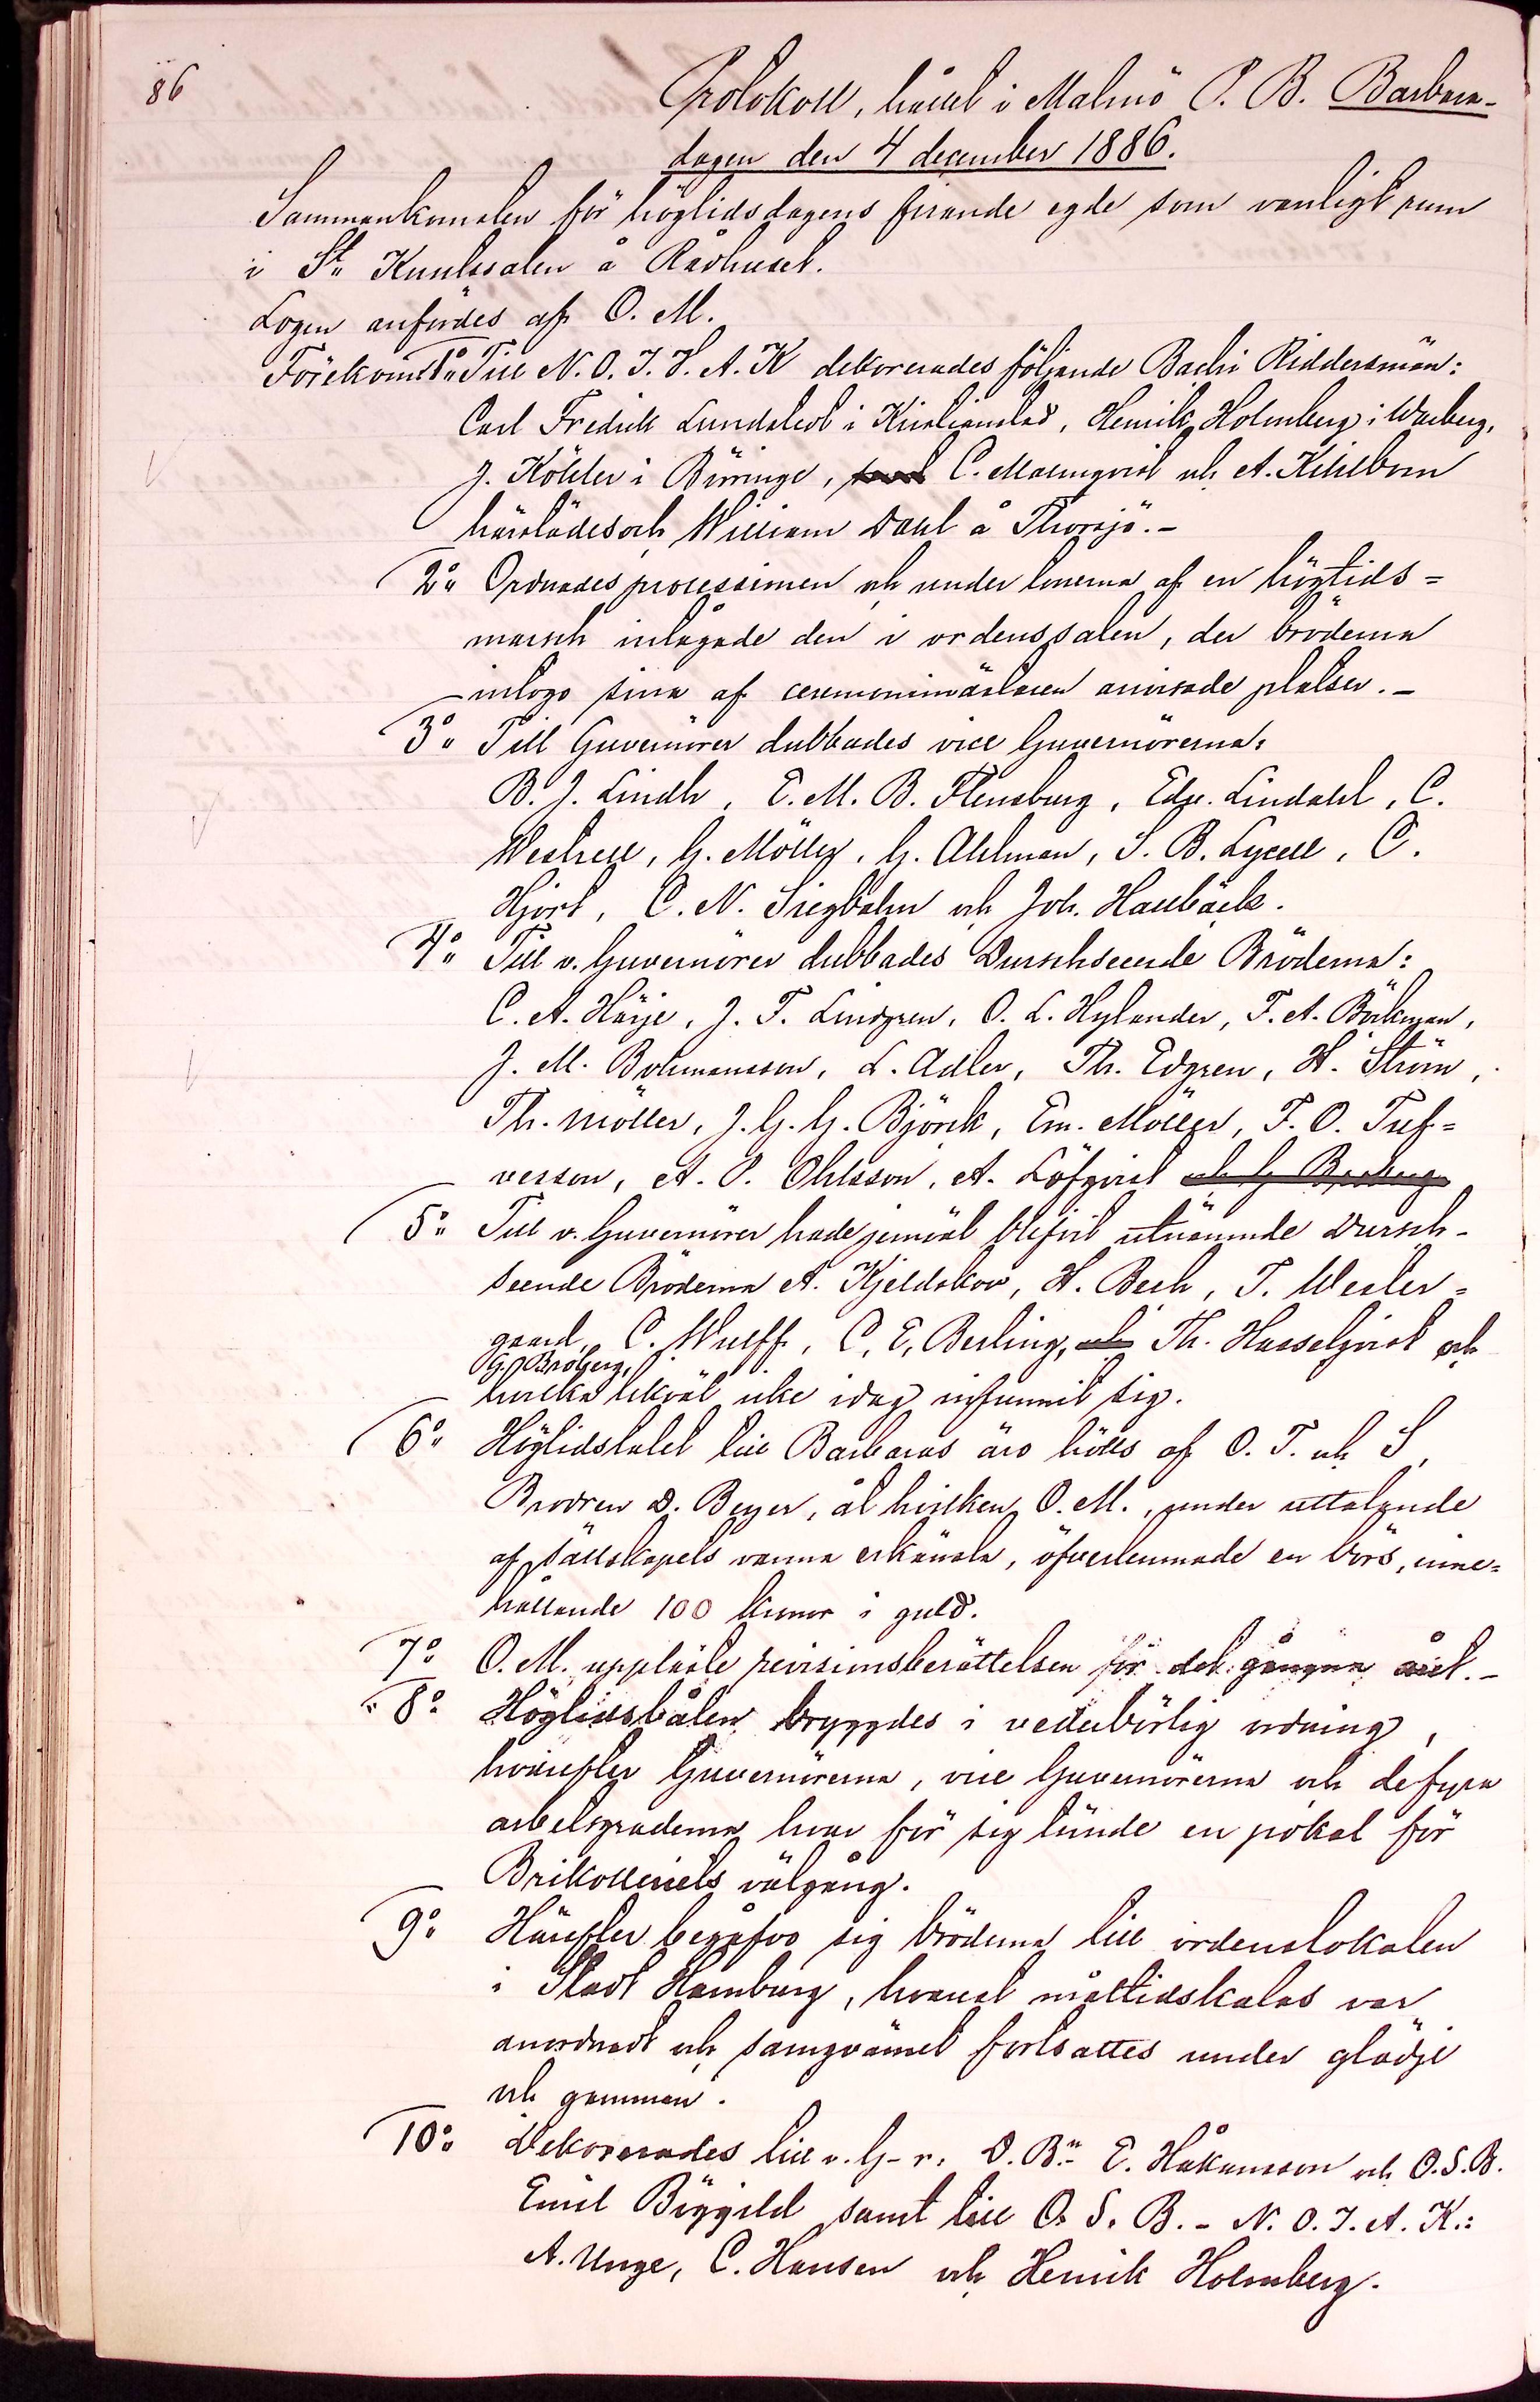 86
Protokoll, hållet i Malmö P. B. Barbara-
dagen den 4 december 1886.
Sammankomsten för högtidsdagens firande egde som vanligt rum
i St. Knutssalen å Rådhuset.
Logen anfördes af O. M.
Förekom: 1o Till N. O. I. H. A. K dekorerades följande Bachi Riddersmän:
Carl Fredrik Lundstedt i Kristianstad, Henrik Holmberg i Warberg,
J. Köhler i Böringe, samt C. Malmqvist och A. Kihlbom
härstädes och William Dahl å Thorsjö.-
2o Ordnades processionen och under tonerna af en högtids=
marsch intågade den i ordenssalen, der bröderna
intogo sina af ceremonimästaren anvisade platser.-
3o Till Guvernörer dubbades vice Guvernörerna:
B. J. Lindh, E. M. B. Flensburg, Edv. Lindahl, C.
Westrell, G. Möller, G. Ahlman, S. B. Lycell, C.
Hjort, C. N. Siegbahn och Joh. Hallbäck.
4o Till v. Guvernörer dubbades Durchseende Bröderna:
C. A. Härje, J. F. Lindgren, O. L. Hylander, F. A. Böckman,
J. M. Bohmansson, L. Adler, Th. Edgren, H. Ström,
Th. Möller, J. G. G. Björck, Em. Möller, F. O. Tuf=
vesson, A. P. Ohlsson, A. Löfqvist och G Broberg
5o Till v. Guvernörer hade jemväl blifvit utnämnde Dursch-
seende Bröderna A. Kjeldskov, H. Bech, T. Wester=
gaard, C. Wulff, C. E. Berling, och Th. Hasselqvist och
G. Broberg,
hvilka likväl icke idag infunnit sig.
6o Högtidstalet till Barbaras äro hölls af O. T. och S,
Brodren D. Beyer, åt hvilken O. M., under uttalande
af sällskapets varma erkänsla, öfverlemnade en börs, inne=
hållande 100 kronor i guld.
7o O. M. uppläste revisionsberättelsen för det gångna året.-
8o Högtidsbålen bryggdes i vederbörlig ordning,
hvarefter Guvernörerna, vice Guvernörerna och de fyra
arbetsgraderna hvar för sig tömde en pokal för
Brikolleriets välgång.
9o Härefter begåfvo sig bröderna till ordenslokalen
i Stadt Hamburg, hvarest måltidskalas var
anordnadt och samqvämet fortsattes under glädje
och gamman.
10o Dekorerades till v. G-r. D. Br. E. Håkansson och O. S. B.
Emil Böggild samt till O. S. B. - N. O. I. A. K.:
A. Unge, C. Hansen och Henrik Holmberg.